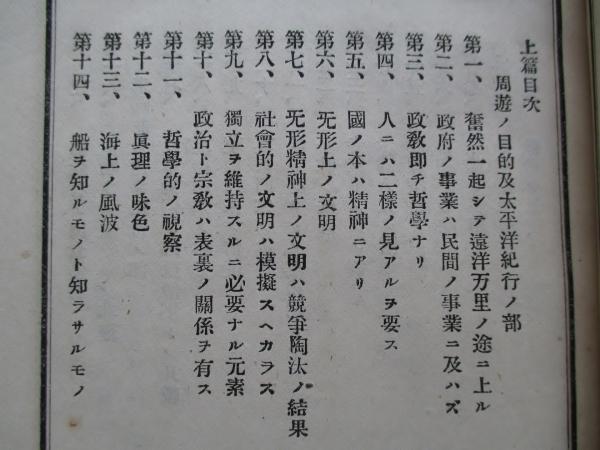 上篇目次
周遊ノ目的及太平洋紀行ノ部
第一、奮然一起シテ遠洋万里ノ途ニ上ル
第二、政府ノ事業ハ民間ノ事業ニ及ハズ
第三、政敎即チ哲學ナリ
第四、人ニハ二樣ノ見アルヲ要ス
第五、國ノ本ハ精神ニアリ
第六、旡形上ノ文明
第七、旡形精神上ノ文明ハ競爭陶汰ノ結果
第八、社會的ノ文明ハ模擬スヘカラス
第九、獨立ヲ維持スルニ必要ナル元素
第十、政治ト宗敎ハ表裏ノ關係ヲ有ス
第十一、哲學的ノ視察
第十二、眞理ノ味色
第十三、海上ノ風波
第十四、船ヲ知ルモノト知ラサルモノ